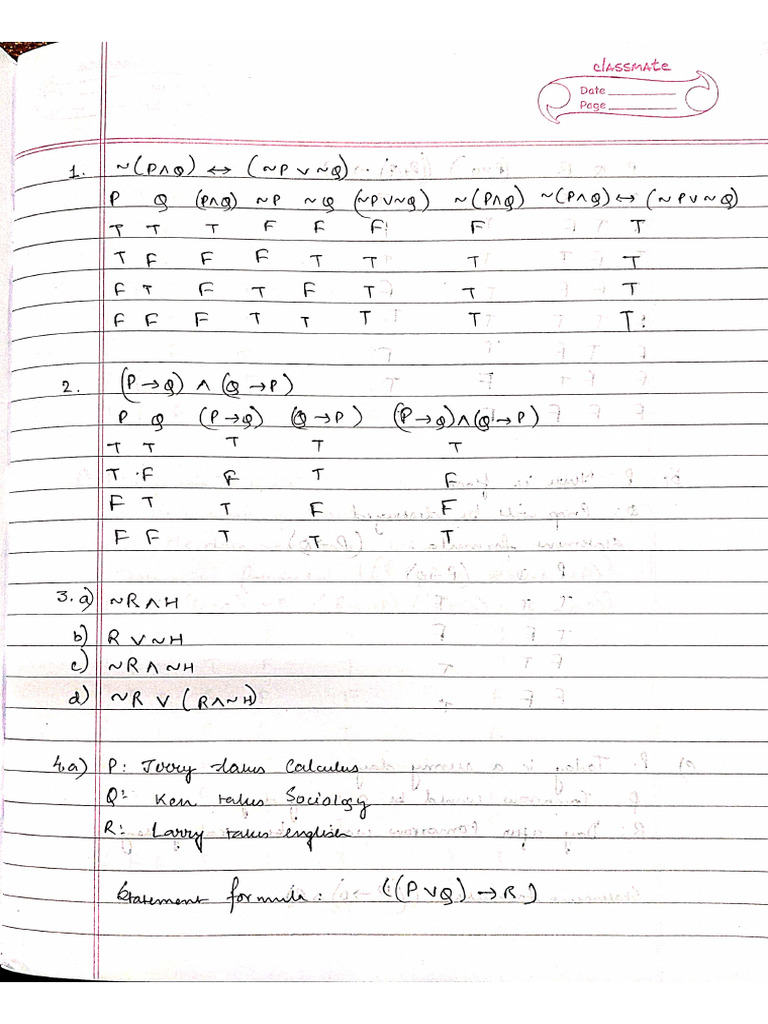 classmate
Date
Page
1. ~(P∧Q) ↔ (~P ∨ ~Q)
P Q (P∧Q) ~P ~Q (~P∨~Q) ~(P∧Q) ~(P∧Q)↔(~P∨~Q)
T T T F F F F T
T F F F T T T T
F T F T F T T T
F F F T T T T T
2. (P→Q) ∧ (Q→P)
P Q (P→Q) (Q→P) (P→Q)∧(Q→P)
T T T T T
T F F T F
F T T F F
F F T T T
3. a) ~R∧H
b) R ∨ ~H
c) ~R ∧ ~H
d) ~R ∨ (R∧~H)
4.a) P: Jerry takes Calculus
Q: Ken takes Sociology
R: Larry takes english
Statement formula: ((P∨Q)→R)